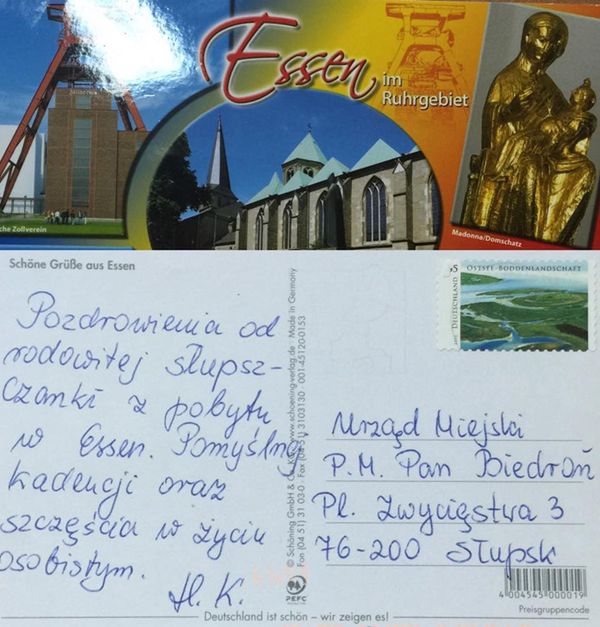 Essen
im
Ruhrgebiet
che Zollverein
Madonna/Domschatz
Schöne Grüße aus Essen
Pozdrowienia od
rodowitej słupsz-
czanki z pobytu
w Essen. Pomyślnej
kadencji oraz
szczęścia w życiu
osobistym.
H. K.
© Schöning GmbH & Co. KG · www.schoening-verlag.de · Made in Germany
Fon (04 51) 31 03-0 · Fax (04 51) 3103130 · 001-45120-0153
PEFC
55
DEUTSCHLAND
OSTSEE-BODDENLANDSCHAFT
Urząd Miejski
P.M. Pan Biedroń
Pl. Zwycięstwa 3
76-200 Słupsk
4 004545 000019
Preisgruppencode
Deutschland ist schön – wir zeigen es!